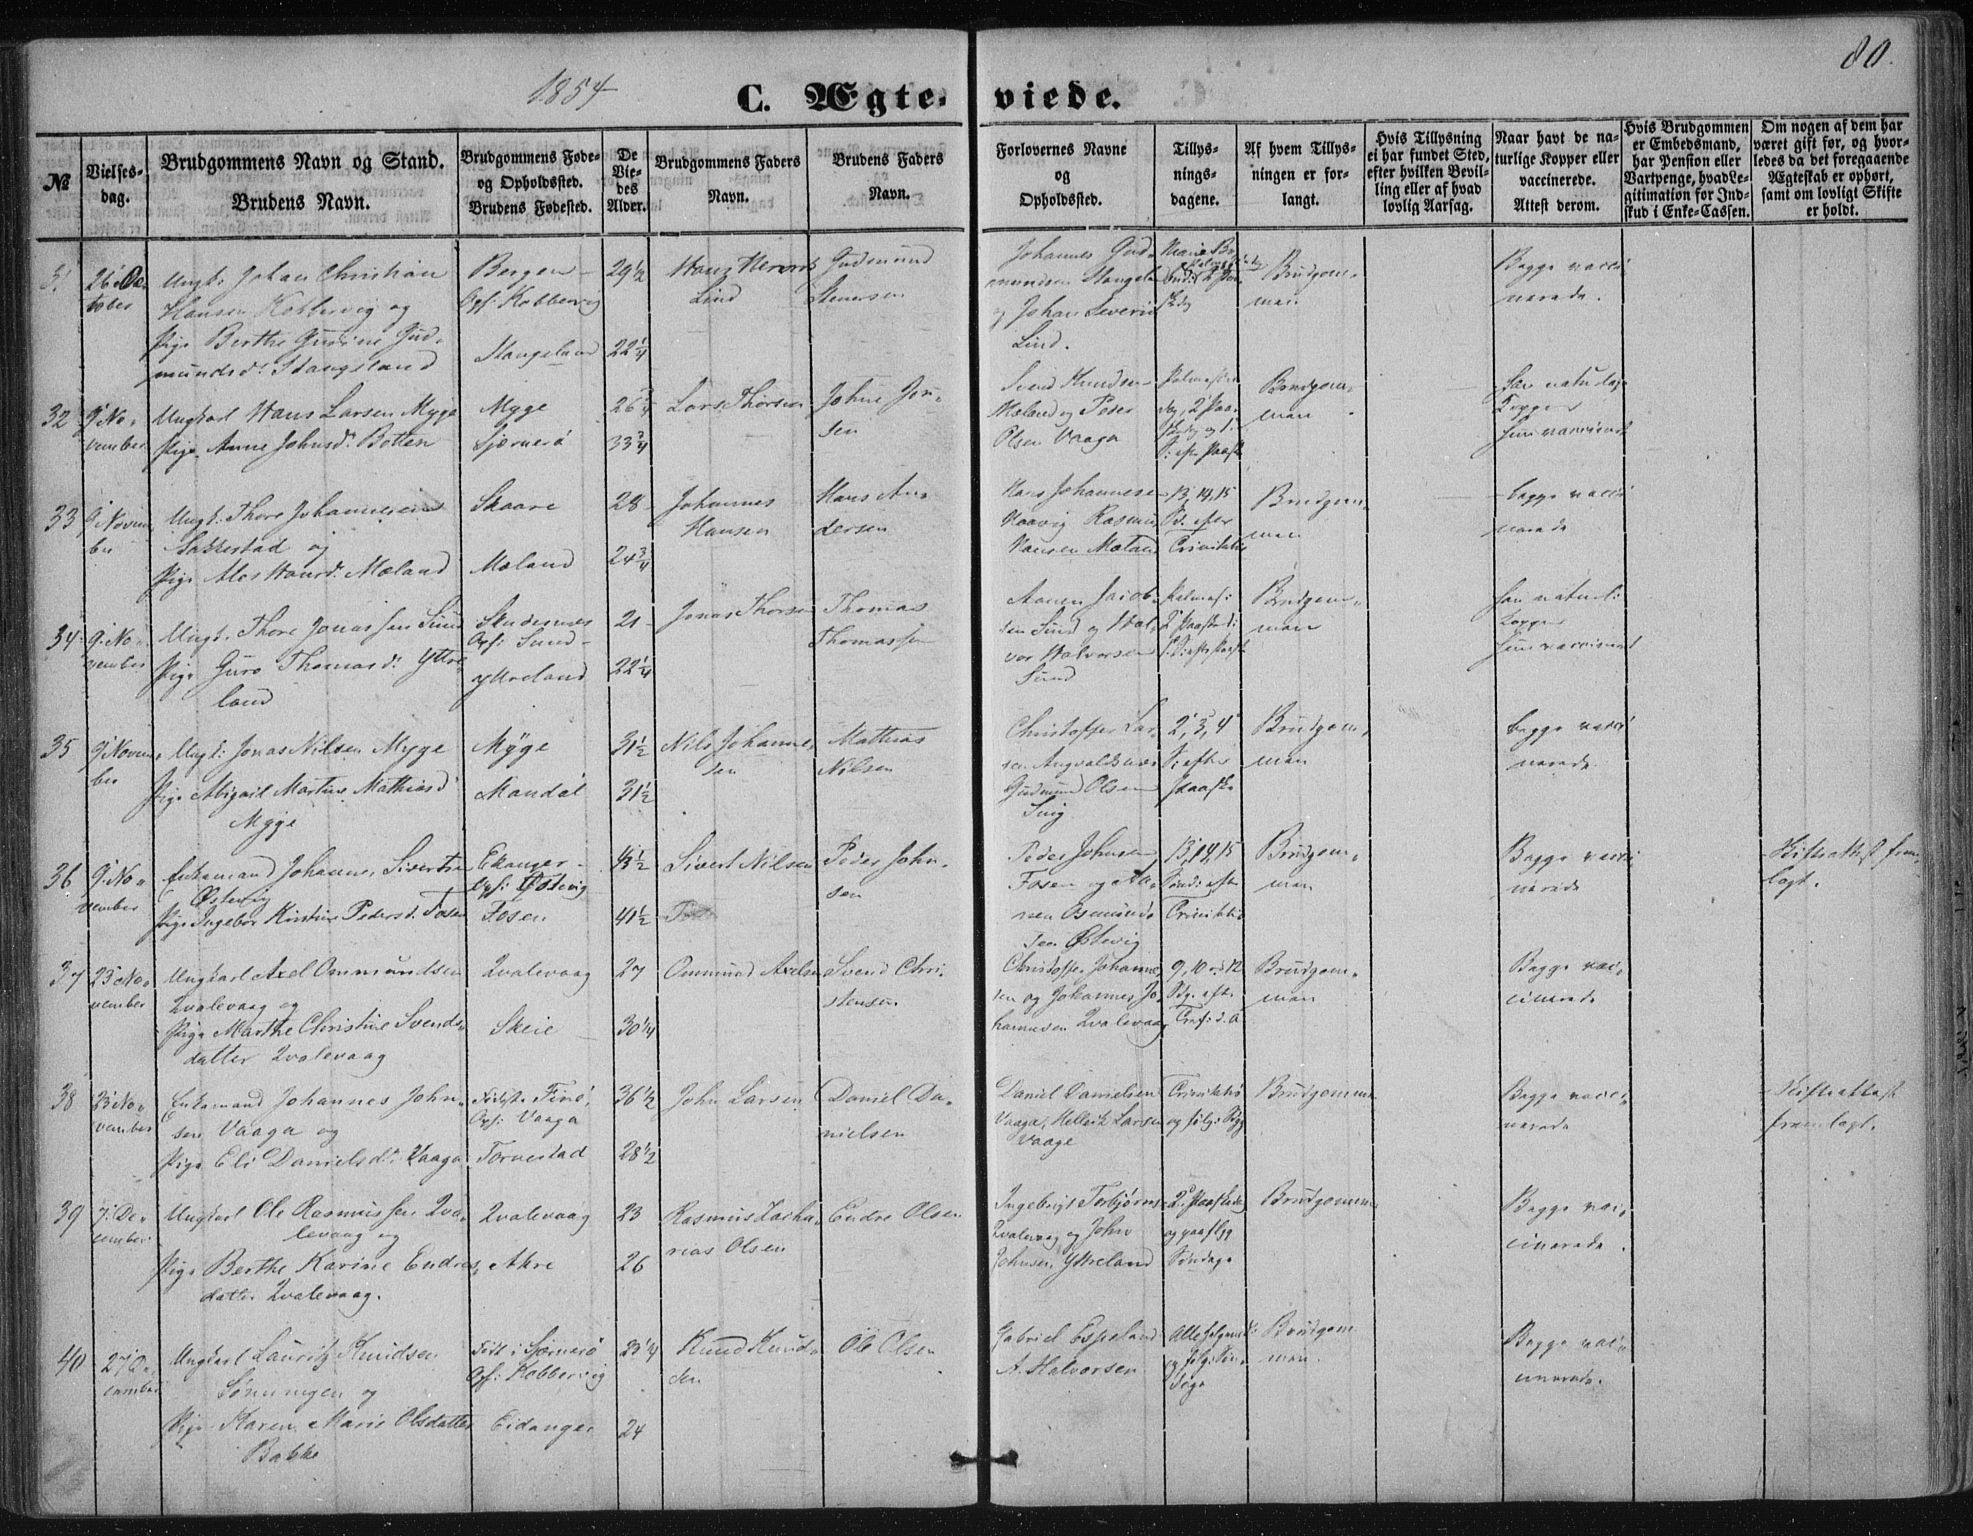 1854
80.
C. Ægteviede.
№
Vielsesdag.
Brudgommens Navn og Stand.
Brudens Navn.
Brudgommens Føde- og Opholdssted.
Brudens Fødested.
De Viedes Alder.
Brudgommens Faders Navn.
Brudens Faders Navn.
Forlovernes Navne og Opholdssted.
Tillysningsdagene.
Af hvem Tillysningen er forlangt.
Hvis Tillysning ei har fundet Sted, efter hvilken Bevilling eller af hvad lovlig Aarsag.
Naar havt de naturlige Kopper eller vaccinerede. Attest derom.
Hvis Brudgommen er Embedsmand, har Pension eller Vartpenge, hvad Legitimation for Indskud i Enke-Cassen.
Om nogen af dem har været gift før, og hvorledes da det foregaaende Ægteskab er ophørt, samt om lovligt Skifte er holdt.
26 Oc-
tober
Ungk: Johan Christian
Hansen Kobbervig og
Pige Berthe Gurine Gud-
mundsd: Stangeland
Bergen
Opf: Kobbervig
Stangeland
29½
22¼
Hans
Lind
Gudmund
Stenersen
Johannes Gud-
mundsen Stangela
og Johan Severin
Lind.
Brudgom-
men
Begge vacci
nerede.
32
9 No-
vember
Ungkarl Hans Larsen Myge
Pige Anne Johnsd: Botten
Myge
Sjernerø
26¾
33¾
Lars Thorsen
Johne Jon-
sen
Svend Knudsen
Mæland og Peder
Olsen Vaaga
Brudgom-
men
han naturlige
Kopper
hun vaccineret
33
9 Novem
ber
Ungk: Thore Johannesen
Sakkestad og
Pige Ales Hansd: Mæland
Skaare
Mæland
28
24¾
Johannes
Hansen
Hans An-
dersen
Hans Johannesen
Haavig Rasmus
Hansen Mæland
13, 14, 15
Sd. efter
Trinitatis
Brudgom-
men
begge vacci
nerede
34
9 No-
vember
Ungk: Thore Jonassen Sund
Pige Guro Thomasd: Yttre-
land
Skudesnes
Opf: Sund
Yttreland
21
22¼
Jonas Thorsen
Thomas
Thomassen
Aanen Jacob-
sen Sund og Hal-
vor Halvorsen
Sund
Brudgom-
men
han naturli:
Kopper
hun vaccineret
35
9 Novem
ber
Ungk: Jonas Nilsen Myge
Pige Abigail Martine Mathiasd
Myge
Myge
Mandal
31½
31½
Nils Johanne
sen
Mathias
Nilsen
Christoffer Lar-
sen Augvaldsnæs
Gudmund Olsen
2, 3, 4
S: efter
Paaske
Brudgom-
men
begge vacci
nerede.
36
9 No-
vember
Enkemand Johannes Sivertsen
Østevig
Pige Ingebor Kirstine Pedersd: Fosen
Ekanger
Opf: Østevig
Fosen
41½
Sivert Nilsen
Peder John-
sen
Peder Johnsen
Fosen og Aa-
nen Osmund-
sen Østevig
13, 14, 15
Sønd: efter
Trinitatis
Brudgom-
men
Begge vacci
nerede
Skifteattest frem-
lagt.
37
23 No-
vember
Ungkarl Axel Ommundsen
Qvalevaag og
Pige Marthe Christine Svends-
datter Qvalevaag
Qvalevaag
Skeie
27
30¼
Ommund Axelsen
Svend Chri-
stensen
Christoffer Johanne-
sen og Johannes Jo-
hannesen Qvalevaag
Brudgom-
men
Begge vac-
cinerede
38
23 No-
vember
Enkemand Johannes John-
sen Vaaga og
Pige Eli Danielsd: Vaaga
Fødest: Finø,
Opf: Vaaga
Torvestad
36½
28½
John Larsen
Daniel Da-
nielsen
Daniel Danielsen
Vaaga, Helleik Larsen
Vaage
Trinitatis
Brudgommen
Begge vacci-
nerede
Skifteattest
fremlagt.
39
7 De-
cember
Ungkarl Ole Rasmussen Qva-
levaag og
Pige Berthe Karine Endres-
datter Qvalevaag.
Qvalevaag
Akre
23
26
Rasmus Zacha-
rias Olsen
Endre Olsen
Ingebrigt Torbjørns
Qvalevaag og John
Johnsen Yttreland
Brudgommen
Begge vac-
cinerede.
40
27 De-
cember
Ungkarl Lauritz Knudsen
Pige Karen Marie Olsdatter
Bakke
Født i Sjernerø
Opf: Kobbervig
Eidanger
23¼
24
Knud Knud-
sen
Ole Olsen
Gabriel Espeland
A. Halvorsen
Brudgom
men.
Begge vac-
cinerede.